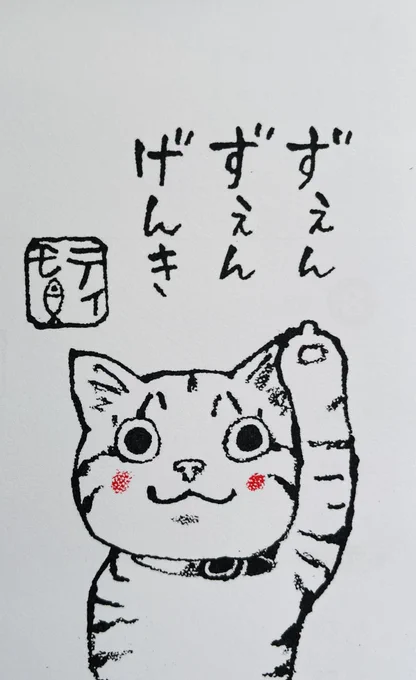 ずぇん
ずぇん
げんき
ティ
モ